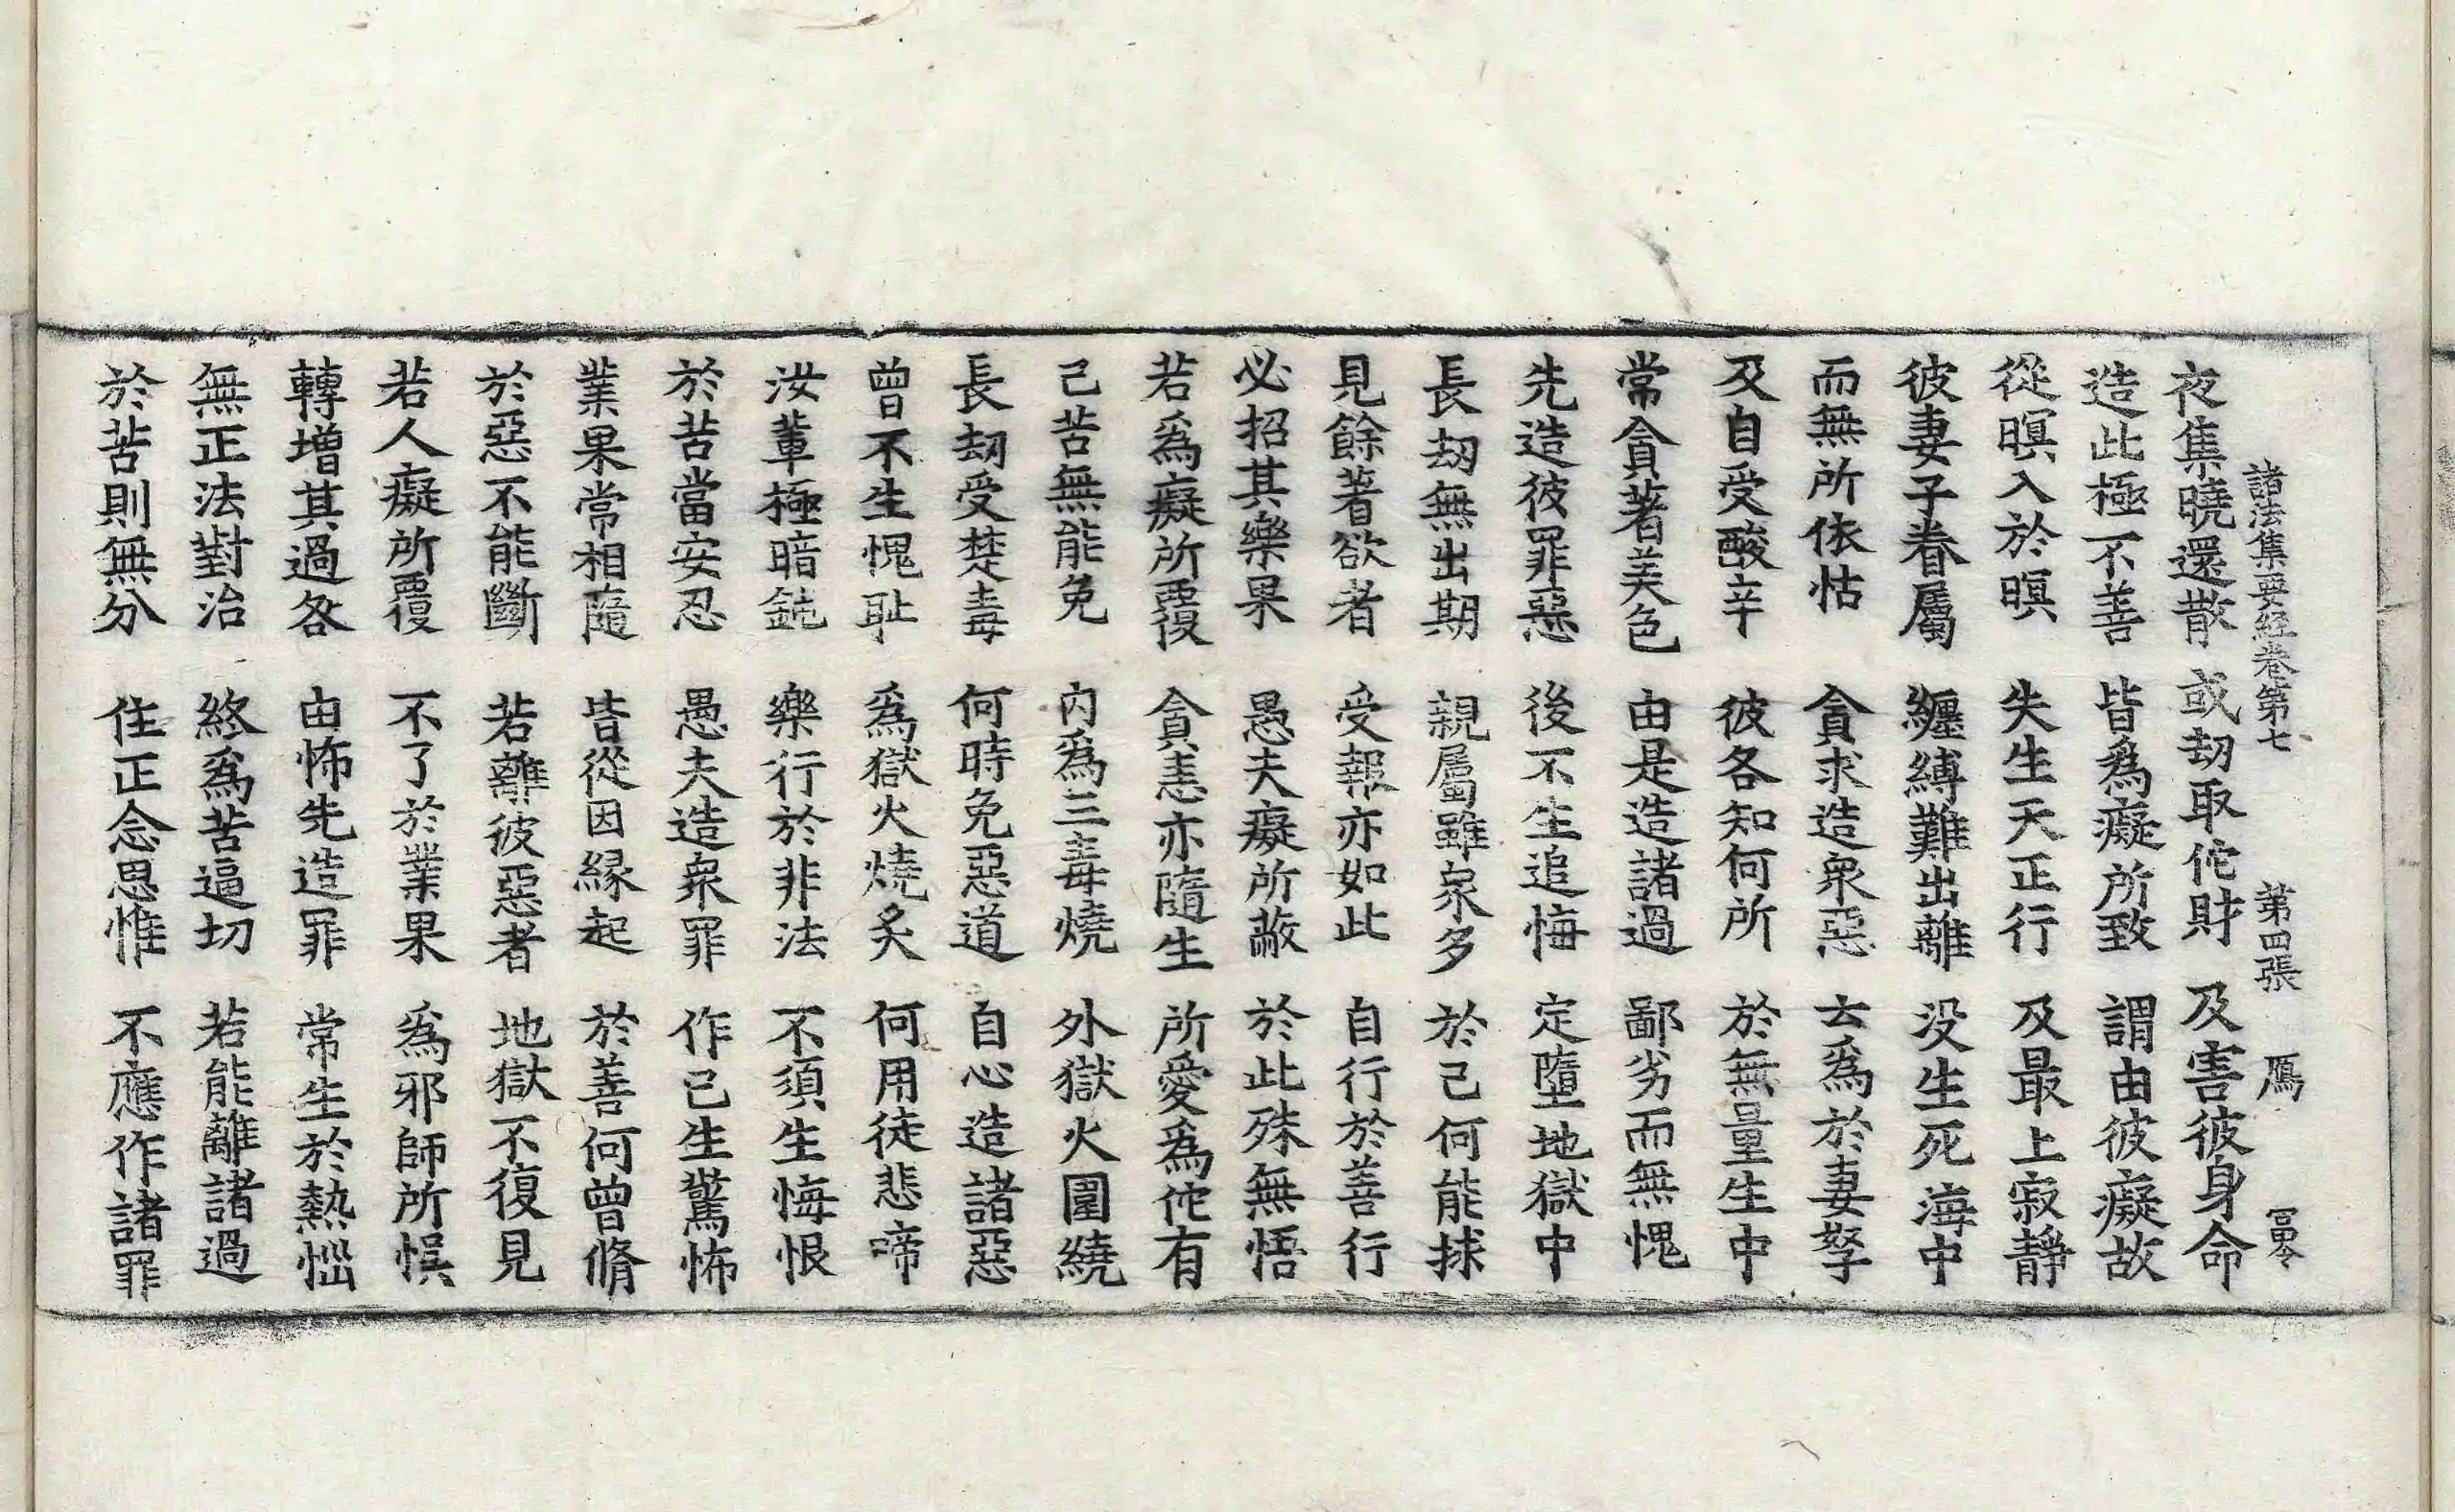 諸法集要経卷第七 第四張 鴈
夜集曉還散 或劫取佗財 及害彼身命
造此極不善 皆爲癡所致 謂由彼癡故
從暝入於暝 失生天正行 及最上寂靜
彼妻子眷屬 纏縛難出離 没生死海中
而無所依怙 貪求造衆惡 去爲於妻孥
及自受酸辛 彼各知何所 於無量生中
常貪著美色 由是造諸過 鄙劣而無愧
先造彼罪惡 後不生追悔 定墮地獄中
長劫無出期 親屬雖衆多 於己何能捄
見餘著欲者 受報亦如此 自行於善行
必招其樂果 愚夫癡所蔽 於此殊無悟
若爲癡所覆 貪恚亦隨生 所愛爲佗有
己苦無能免 内爲三毒燒 外獄火圍繞
長劫受楚毒 何時免惡道 自心造諸惡
曾不生愧耻 爲獄火燒炙 何用徒悲啼
汝輩極暗鈍 樂行於非法 不須生悔恨
於苦當安忍 愚夫造衆罪 作已生驚怖
業果常相隨 皆從因縁起 於善何曾脩
於惡不能斷 若離彼惡者 地獄不復見
若人癡所覆 不了於業果 爲邪師所悞
轉增其過咎 由怖先造罪 常生於熱惱
無正法對治 終爲苦逼切 若能離諸過
於苦則無分 住正念思惟 不應作諸罪